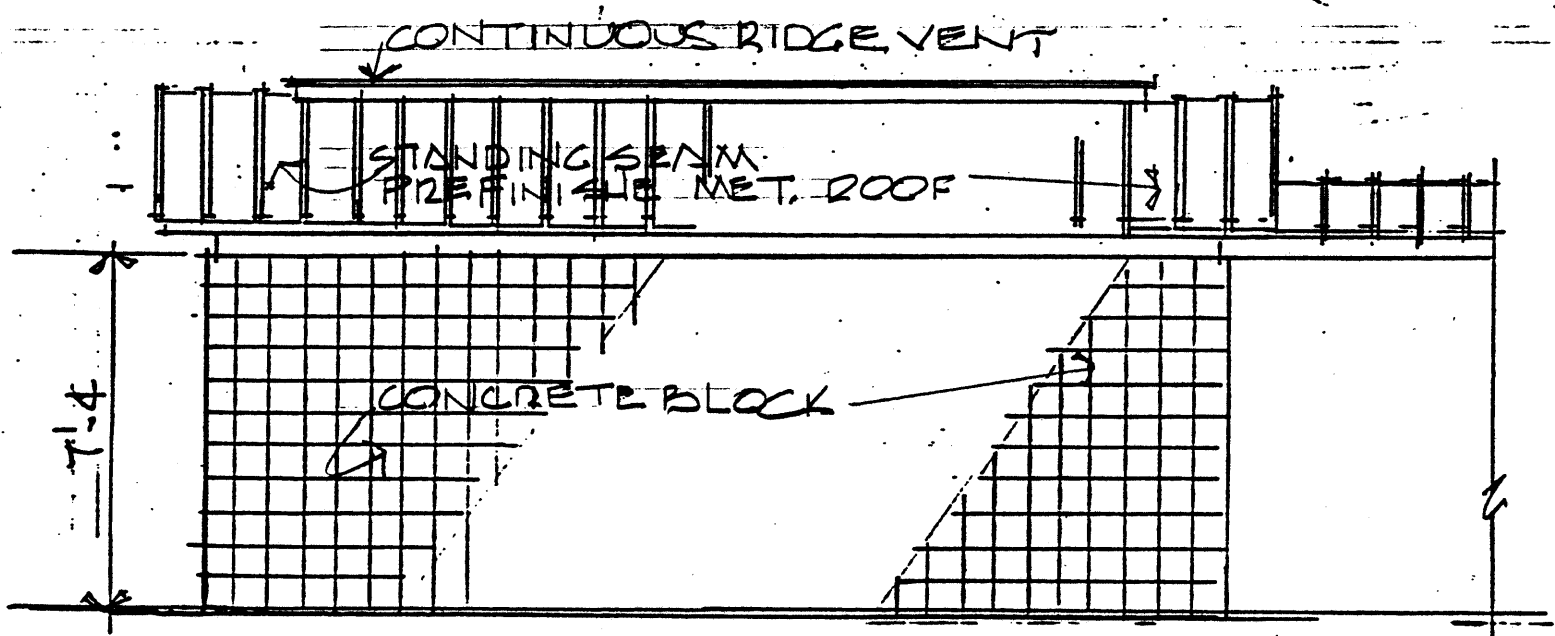 CONTINUOUS RIDGE VENT
STANDING SEAM
PREFINISHE MET. ROOF
CONCRETE BLOCK
7'-4